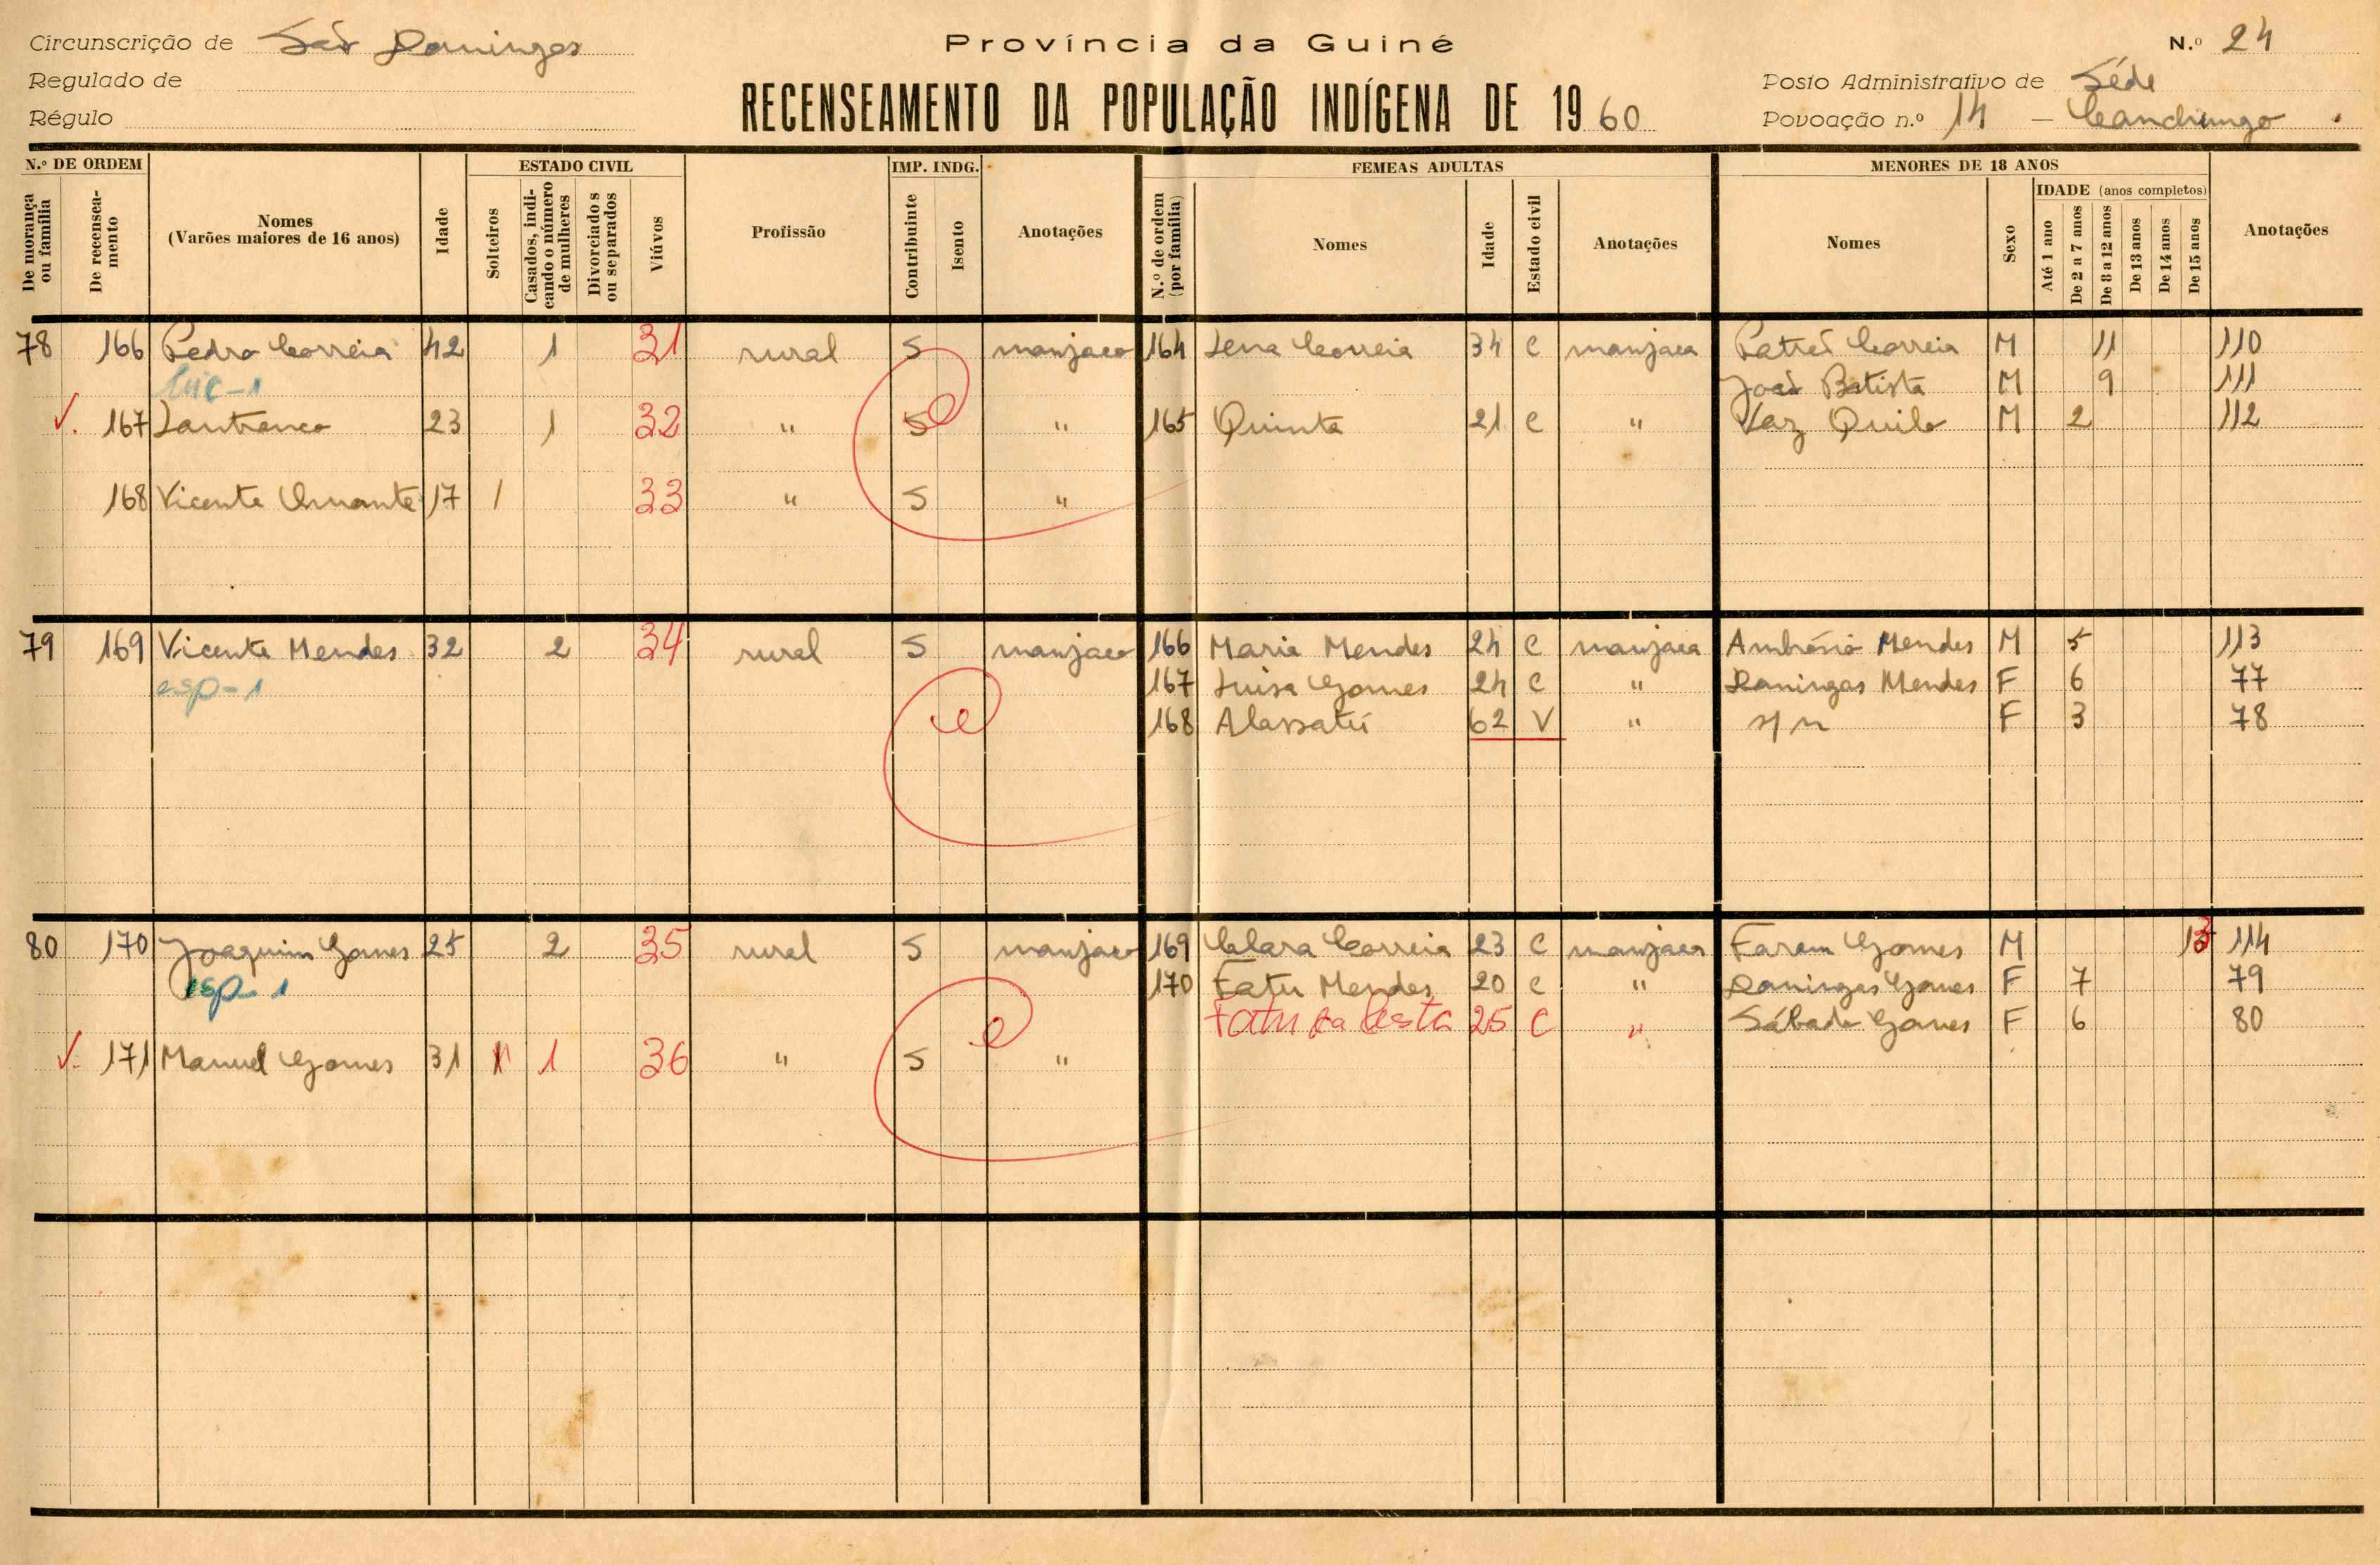 Circunscrição de São Domingos
Província da Guiné
N.º 24
Regulado de
RECENSEAMENTO DA POPULAÇÃO INDÍGENA DE 1960
Posto Administrativo de Séde
Régulo
Povoação n.º 14 — Canchungo
N.º DE ORDEM
ESTADO CIVIL
IMP. INDG.
FEMEAS ADULTAS
MENORES DE 18 ANOS
De morança ou família
De recenseamento
Nomes
(Varões maiores de 16 anos)
Idade
Solteiros
Casados, indicando o número de mulheres
Divorciados ou separados
Viúvos
Profissão
Contribuinte
Isento
Anotações
N.º de ordem (por família)
Nomes
Idade
Estado civil
Anotações
Nomes
Sexo
IDADE (anos completos)
Até 1 ano
De 2 a 7 anos
De 8 a 12 anos
De 13 anos
De 14 anos
De 15 anos
Anotações
78 166 Pedro Correia 42 1 31 rural S manjaco 164 Lena Correia 34 C manjaca Correia M 11 110
João Batista M 9 111
167 23 1 32 " S " 165 Quinta 21 C " Vaz Quilo M 2 112
168 Vicente 17 1 33 " S "
79 169 Vicente Mendes 32 2 34 rural S manjaco 166 Maria Mendes 24 C manjaca Ambrósio Mendes M 5 113
esp-1 167 Luisa Gomes 24 C " Domingas Mendes F 6 77
e 168 Alassatú 62 V " s/n F 3 78
80 170 Joaquim Gomes 25 2 35 rural S manjaco 169 Clara Correia 23 C manjaca Farem Gomes M 114
esp-1 170 Fatu Mendes 20 C " Domingas Gomes F 7 79
e Fatu da Costa 25 C " Sábado Gomes F 6 80
171 Manuel Gomes 31 1 36 " S "